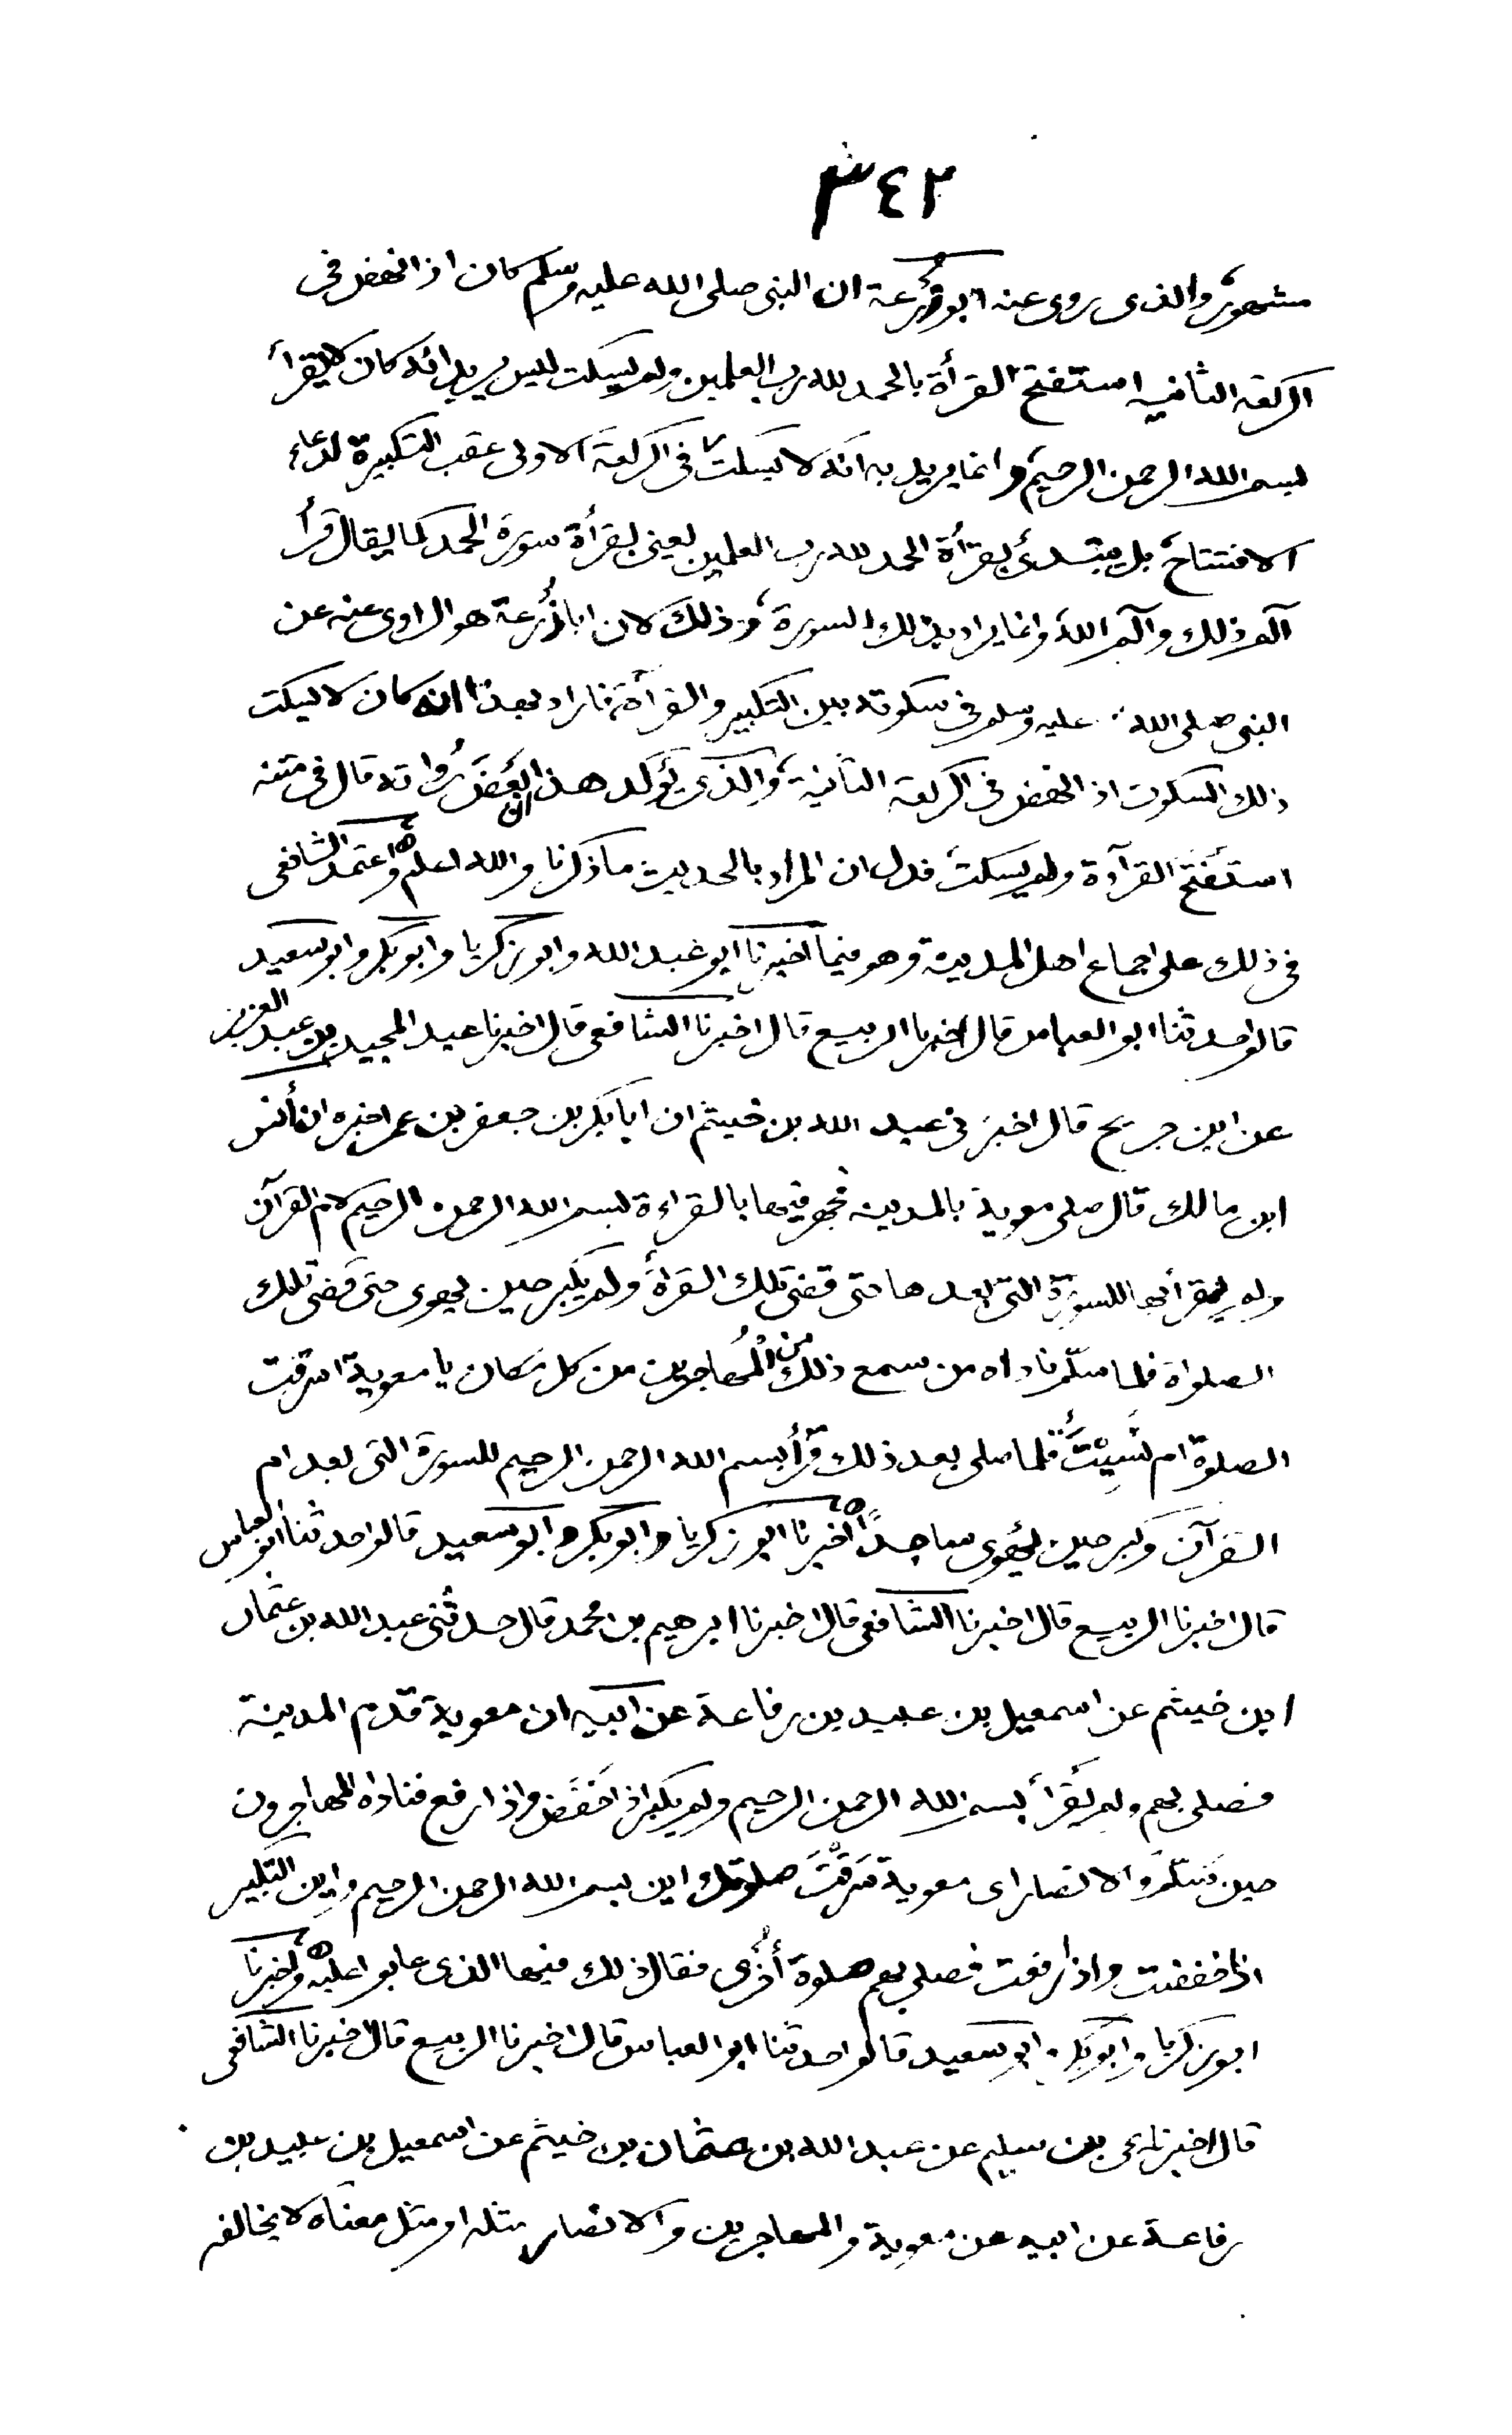 ٣٤٢
مشهور والذى روى عنه ابو زُرعة ان النبى صلى الله عليه وسلم كان اذا نهض فى
الركعة الثانية استفتح القرأة بالحمد لله رب العلمين ولم يسكت ليس يريد انه كان لا يقرأ
بسم الله الرحمن الرحيم وانما يريد به انه لا يسكت فى الركعة الاولى عقب التكبيرة لدعاء
الافتتاح بل يبتدئ بقرأة الحمد لله رب العلمين يعنى بقرأة سورة الحمد كما يقال قرأ
آلم ذلك وآلم الله وانما يراد بذلك السورة وذلك لان ابا زُرعة هو الراوى عنه عن
النبى صلى الله عليه وسلم فى سكوته بين التكبير والقرأة فاراد بهذا انه كان لا يسكت
ذلك السكوت اذا نهض فى الركعة الثانية والذى يؤكد هذا ان بعض رُواته قال فى متنه
استفتح القرآءة ولم يسكت فدل ان المراد بالحديث ما ذكرنا والله اعلم واعتمد الشافعى
فى ذلك على اجماع اهل المدينة وهو فيما اخبرنا ابو عبد الله وابو زكريا وابو بكر وابو سعيد
قالوا حدثنا ابو العباس قال اخبرنا الربيع قال اخبرنا الشافعى قال اخبرنا عبد المجيد بن عبد العزيز
عن ابن جريج قال اخبرنى عبد الله بن خيثم ان ابا بكر بن جعفر بن عمر اخبره ان أنس
ابن مالك قال صلى معوية بالمدينة فجهر فيها بالقراءة بسم الله الرحمن الرحيم لام القرآن
ولم يقرأ بها للسورة التى بعدها حتى قضى تلك القرأة ولم يكبر حين يهوى حتى قضى تلك
الصلواة فلما سلّم ناداه من سمع ذلك من المُهاجرين من كل مكان يا معوية اسرقت
الصلوة ام نَسِيْتَ فلما صلى بعد ذلك قرأ بسم الله الرحمن الرحيم للسورة التى بعد ام
القرآن وكبر حين يهوى ساجدًا اخبرنا ابو زكريا وابو بكر وابو سعيد قالوا حدثنا ابو العباس
قال اخبرنا الربيع قال اخبرنا الشافعى قال اخبرنا ابرهيم بن محمد قال حدثنى عبد الله بن عثمان
ابن خيثم عن اسمعيل بن عبيد بن رفاعة عن ابيه ان معوية قدم المدينة
فصلى بهم ولم يقرأ بسم الله الرحمن الرحيم ولم يكبر اذا خَفَضَ واذا رفع فناداه المهاجرون
حين سَلّم والانصار اى معوية سَرَقْتَ صلوتك اين بسم الله الرحمن الرحيم واين التكبير
اذا خفضت واذا رفعت فصلى بهم صلوة أُخرى فقال ذلك فيها الذى عابوا عليه واخبرنا
ابو زكريا وابو بكر وابو سعيد قالوا حدثنا ابو العباس قال اخبرنا الربيع قال اخبرنا الشافعى
قال اخبرنا يحيى بن سليم عن عبد الله بن عثمان بن خيثم عن اسمعيل بن عبيد بن
رفاعة عن ابيه عن معوية والمهاجرين والانصار مثله او مثل معناه لا يخالفه